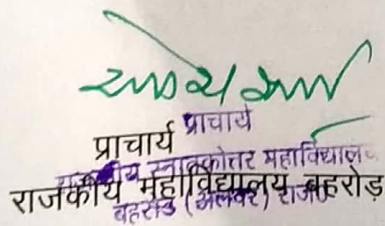 प्राचार्य
प्राचार्य
राजकीय स्नातकोत्तर महाविद्यालय
राजकीय महाविद्यालय बहरोड़
बहरोड (अलवर) राज०